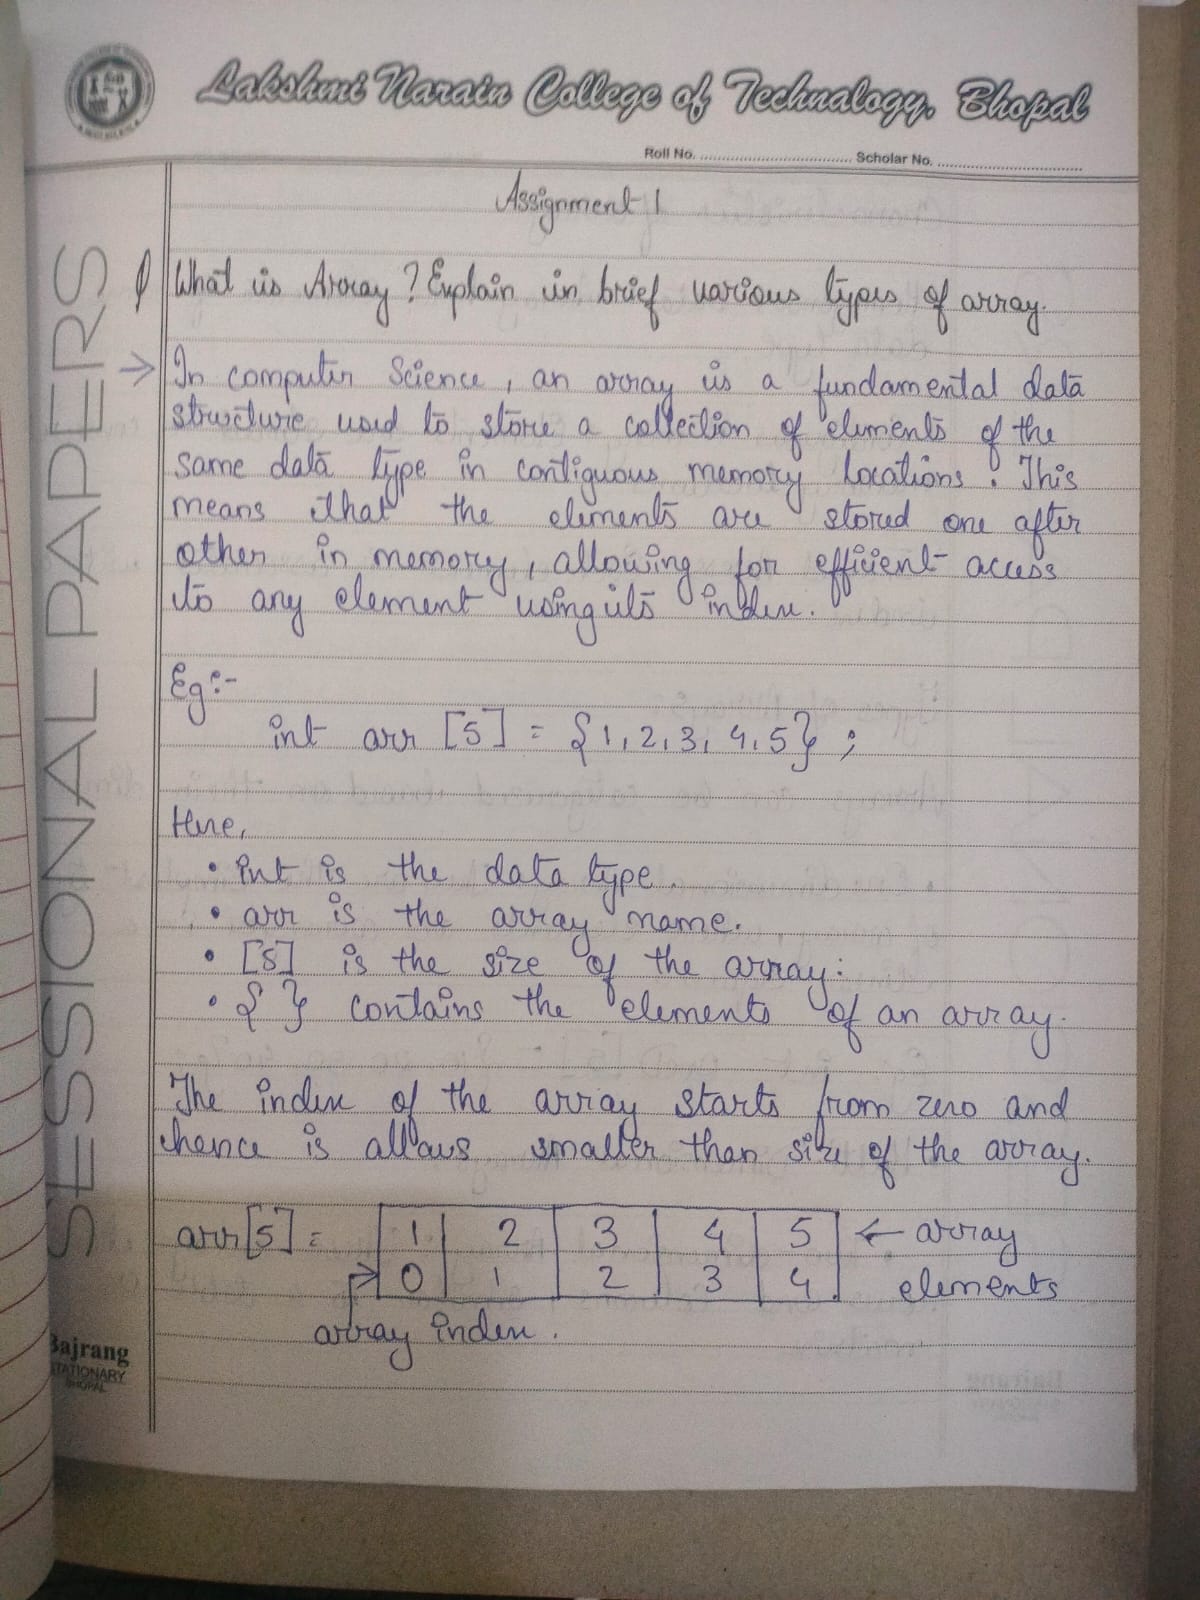 Lakshmi Narain College of Technology, Bhopal
Roll No. ........................ Scholar No. ........................
Assignment 1
SESSIONAL PAPERS
What is Array? Explain in brief various types of array.
→ In computer Science, an array is a fundamental data
structure used to store a collection of elements of the
same data type in contiguous memory locations. This
means that the elements are stored one after
other in memory, allowing for efficient access
to any element using its index.
Eg:-
int arr [5] = {1, 2, 3, 4, 5} ;
Here,
• int is the data type.
• arr is the array name.
• [5] is the size of the array.
• { } contains the elements of an array.
The index of the array starts from zero and
hence is allaus smaller than size of the array.
arr[5] = 1 2 3 4 5 ← array
0 1 2 3 4 elements
array index.
Bajrang
STATIONARY
BHOPAL